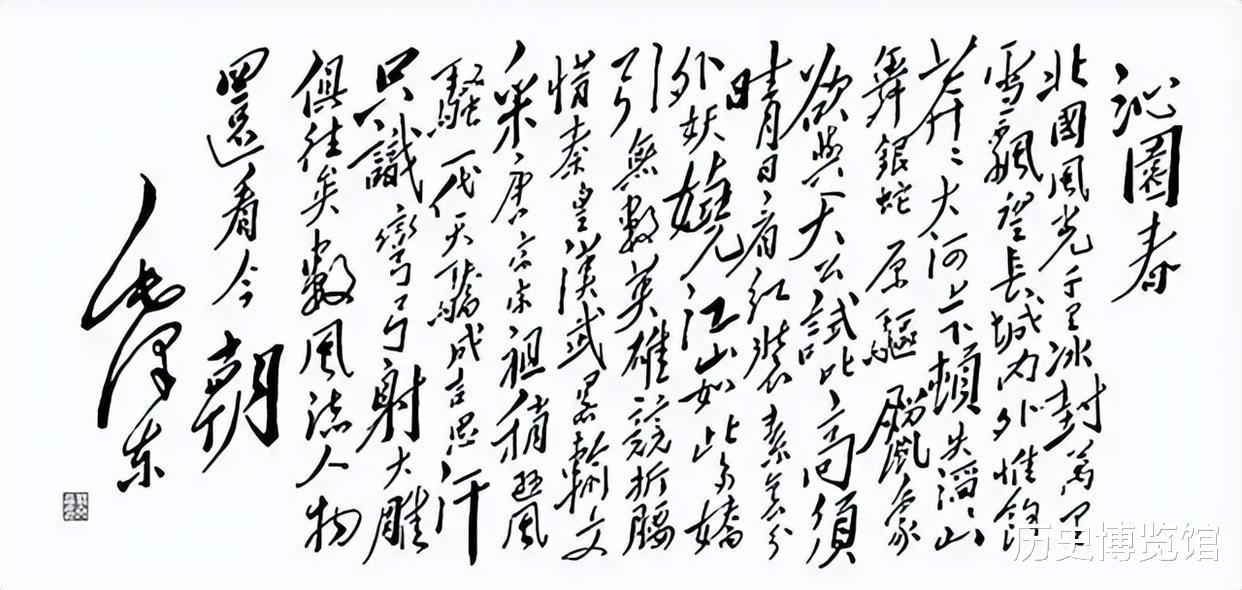 沁園春
北國風光千里冰封萬里
雪飄望長城內外惟餘
莽〻大河上下頓失滔〻山
舞銀蛇原驅臘象
欲與天公試比高須
晴日看紅裝素裹分
外妖嬈江山如此多嬌
引無數英雄競折腰
惜秦皇漢武略輸文
采唐宗宋祖稍遜風
騷一代天驕成吉思汗
只識彎弓射大雕
俱往矣數風流人物
還看今朝
毛澤東
历史博览馆